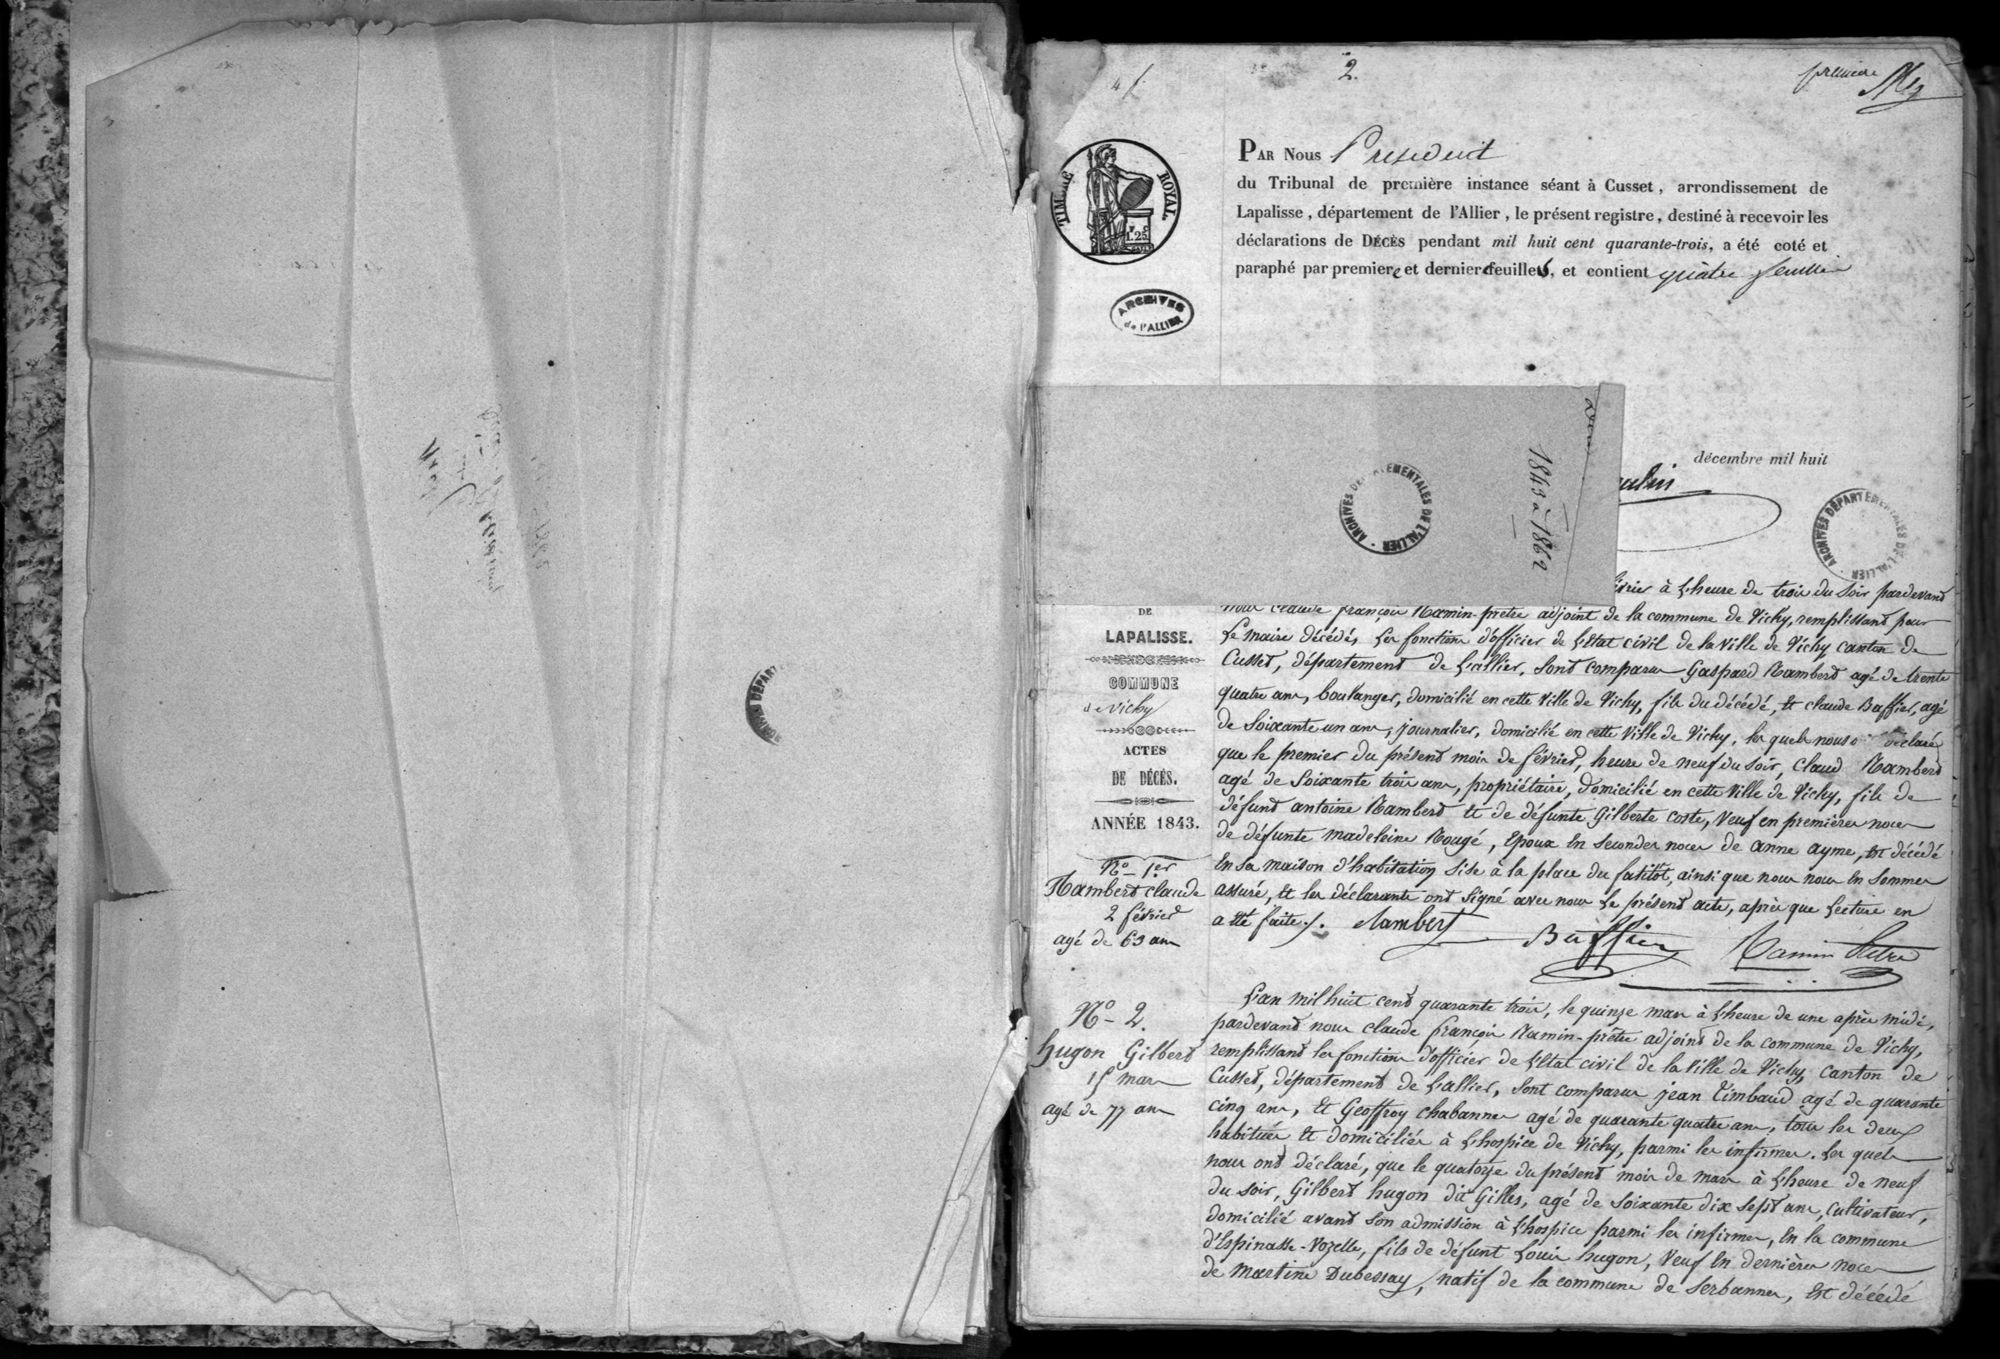 2.
première
TIMBRE ROYAL
1.25
PAR NOUS Président
du Tribunal de première instance séant à Cusset, arrondissement de
Lapalisse, département de l'Allier, le présent registre, destiné à recevoir les
déclarations de DÉCÈS pendant mil huit cent quarante-trois, a été coté et
paraphé par premiere et derniere feuillets, et contient quatre feuillets
ARCHIVES de l'ALLIER
décembre mil huit
1843 à 1862
ARCHIVES DÉPARTEMENTALES DE L'ALLIER
ARCHIVES DÉPARTEMENTALES DE L'ALLIER
DE
LAPALISSE.
COMMUNE
de Vichy
ACTES
DE DÉCÈS.
ANNÉE 1843.
N° 1er
Rambert claude
2 février
agé de 63 ans
février à L'heure de trois du Soir pardevant
nous claude françois Ramin-prêtre adjoint de la commune de Vichy, remplissant pour
Le maire décédés, Les fonctions d'officier de L'Etat civil de la ville de Vichy canton de
Cusset, département de L'allier, Sont comparus Gaspard Rambert agé de trente
quatre ans, boulanger, domicilié en cette Ville de Vichy, fils du décédé, Et claude Buffier, agé
de Soixante un ans, journalier, domicilié en cette Ville de Vichy, les quels nous déclaré
que le premier du présent mois de février, heure de neuf du soir, Claud Rambert
agé de Soixante trois ans, propriétaire, domicilié en cette Ville de Vichy, fils de
défunt antoine Rambert et de défunte Gilberte coste, Veuf en premières noces
de défunte madeleine Rougé, Epoux En Secondes noces de anne ayme, Est décédé
En Sa maison d'habitation Sise à la place du fatitot, ainsi que nous nous En Sommes
assuré, Et les déclarants ont Signé avec nous Le présent acte, après que Lecture en
a Eté faite ./. Rambert
Buffier Ramin Prêtre
N° 2.
hugon Gilbert
15 mars
agé de 77 ans
L'an mil huit cent quarante trois, le quinze mars à L'heure de une après midi,
pardevant nous claude françois Ramin-prêtre adjoint de la commune de Vichy,
remplissant les fonctions d'officier de L'Etat civil de la Ville de Vichy, canton de
Cusset, département de L'allier, Sont comparus jean Timbaud agé de quarante
cinq ans, Et Geoffroy chabannes agé de quarante quatre ans, tous les deux
habitués Et domiciliés à L'hospice de Vichy, parmi les infirmes. Les quels
nous ont déclaré, que le quatorze du présent mois de mars à L'heure de neuf
du soir, Gilbert hugon dit Gilles, agé de soixante dix sept ans, Cultivateur,
domicilié avant son admission à L'hospice parmi les infirmes, En la commune
d'Espinasse-Vozelle, fils de défunt Louis hugon, Veuf En dernières noces
de martine Dubessay, natif de la commune de Serbannes, Est décédé